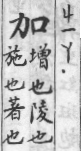 加
增也陵也
施也著也
ㄐㄧㄚ